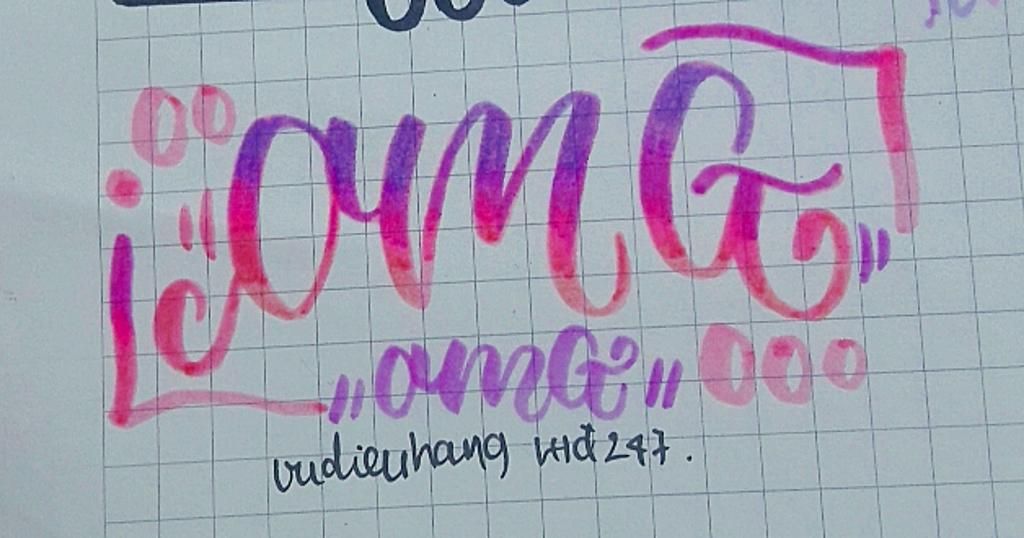 OMG
"OMG"
vudieuhang
247.